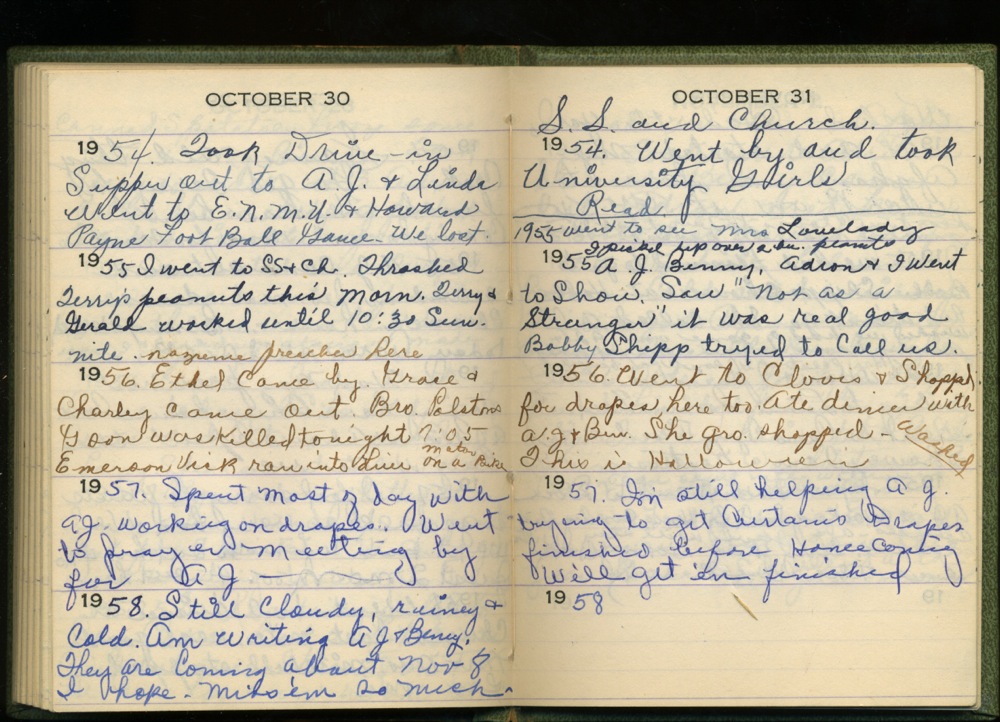 OCTOBER 30
1954. Took Drive-in
Supper out to A.J. & Linda
Went to E.N.M.U. & Howard
Payne Foot Ball Game. We lost.
1955 I went to SS & Ch. Thrashed
Terry's peanuts this morn. Terry &
Gerald worked until 10:30 Sun.
nite. nazrene preacher here
1956. Ethel Came by. Grace &
Charley came out. Bro. Polstons
Goon was Killed tonight 7:05
Emerson Vick ran into him on a motor Bike
1957. Spent most of day with
AJ. working on drapes. Went
to prayer meeting by
for AJ
1958. Still Cloudy, rainey &
Cold. Am writing AJ & Beney.
They are Coming about Nov 8
I hope - miss 'em so much.
OCTOBER 31
S.S. and Church.
1954. Went by and took
University Girls
Read.
1955 went to see Mrs Lovelady
I picked up over a bu. peanuts
1955 A.J. Benny, Adron & I went
to Show. Saw "Not as a
Stranger" it was real good
Bobby Shipp tryed to Call us.
1956. Went to Clovis & Shopped
for drapes, here too. Ate dinner with
A.J & Ben. She gro. shopped -
Washed
This is Halloween
1957. Im still helping A J.
trying to get Curtains Drapes
finished before Homecoming
Will get 'em finished
1958